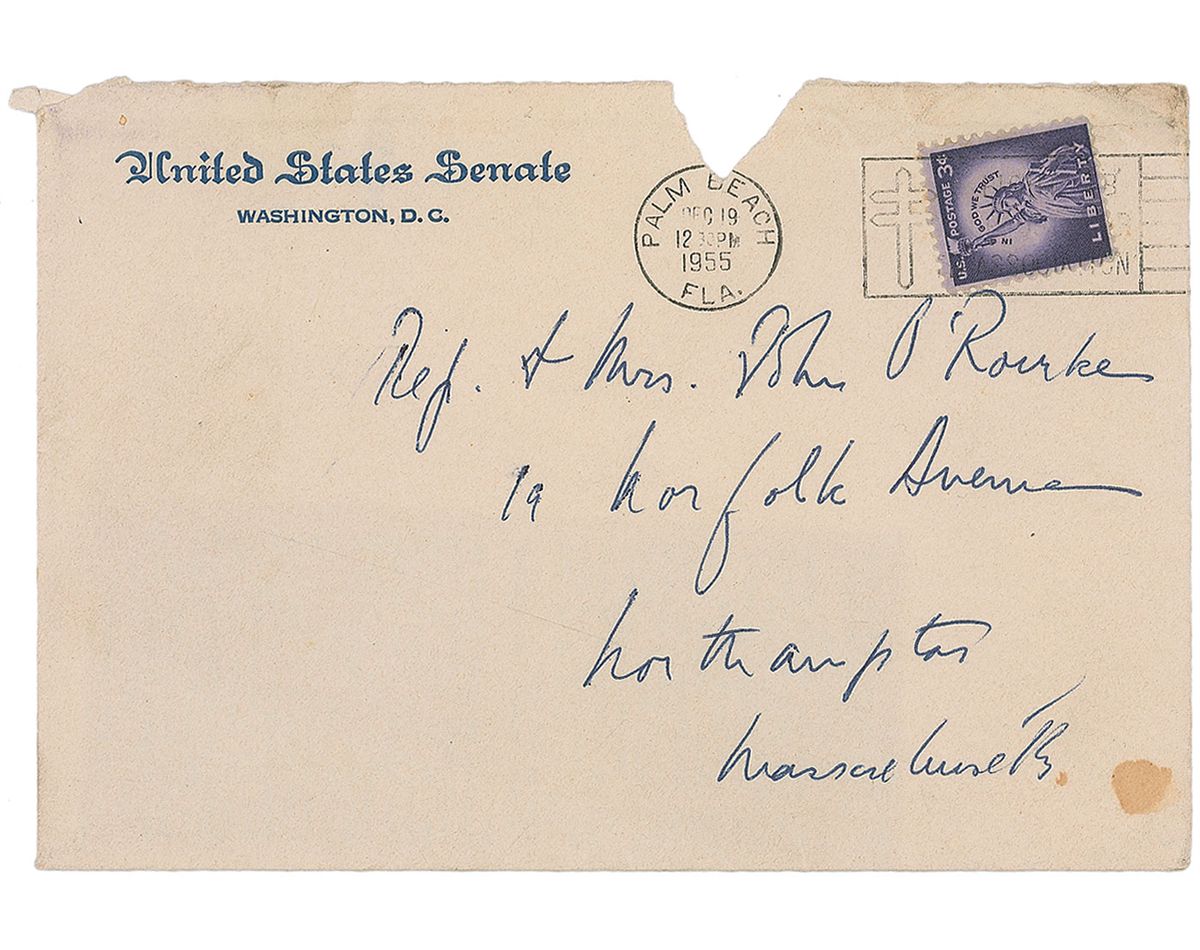 United States Senate
WASHINGTON, D. C.
PALM BEACH
DEC 19
12 30PM
1955
FLA.
U.S. POSTAGE 3¢
IN GOD WE TRUST
LIBERTY
Rep. & Mrs. John O'Rourke
19 Norfolk Avenue
Northampton
Massachusetts.